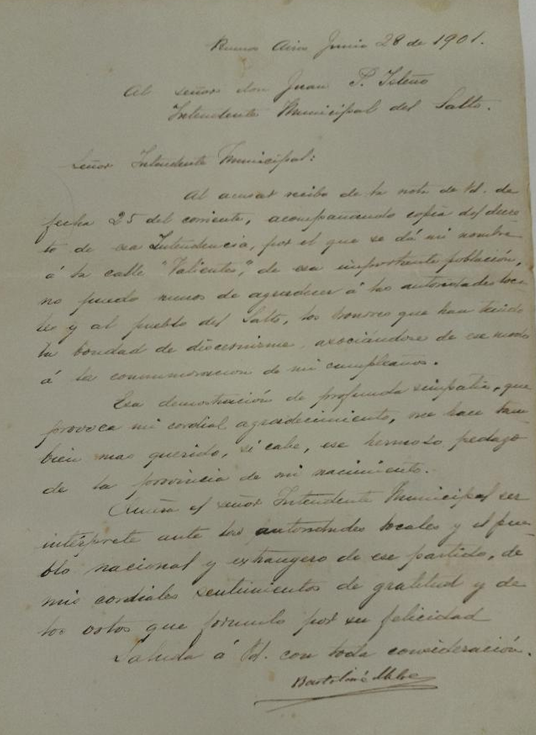 Buenos Aires Junio 28 de 1901.
Al señor don Juan P.
Intendente Municipal del Salto.
Señor Intendente Municipal:
Al acusar recibo de la nota de Vd. de
fecha 25 del corriente, acompañando copia del decre-
to de esa Intendencia, por el que se dá mi nombre
á la calle "Valiente", de esa importante población,
no puedo menos de agradecer á las autoridades loca-
les y al pueblo del Salto, los honores que han tenido
la bondad de discernirme, asociándose de ese modo
á la conmemoración de mi cumpleaños.
Esa demostración de profunda simpatía, que
provoca mi cordial agradecimiento, me hace tam-
bien mas querido, si cabe, ese hermoso pedazo
de la provincia de mi nacimiento.
Quiera el señor Intendente Municipal ser
intérprete ante las autoridades locales y el pue-
blo nacional y extrangero de ese partido, de
mis cordiales sentimientos de gratitud y de
los votos que formulo por su felicidad
Saluda á Vd. con toda consideración.
Bartolomé Mitre